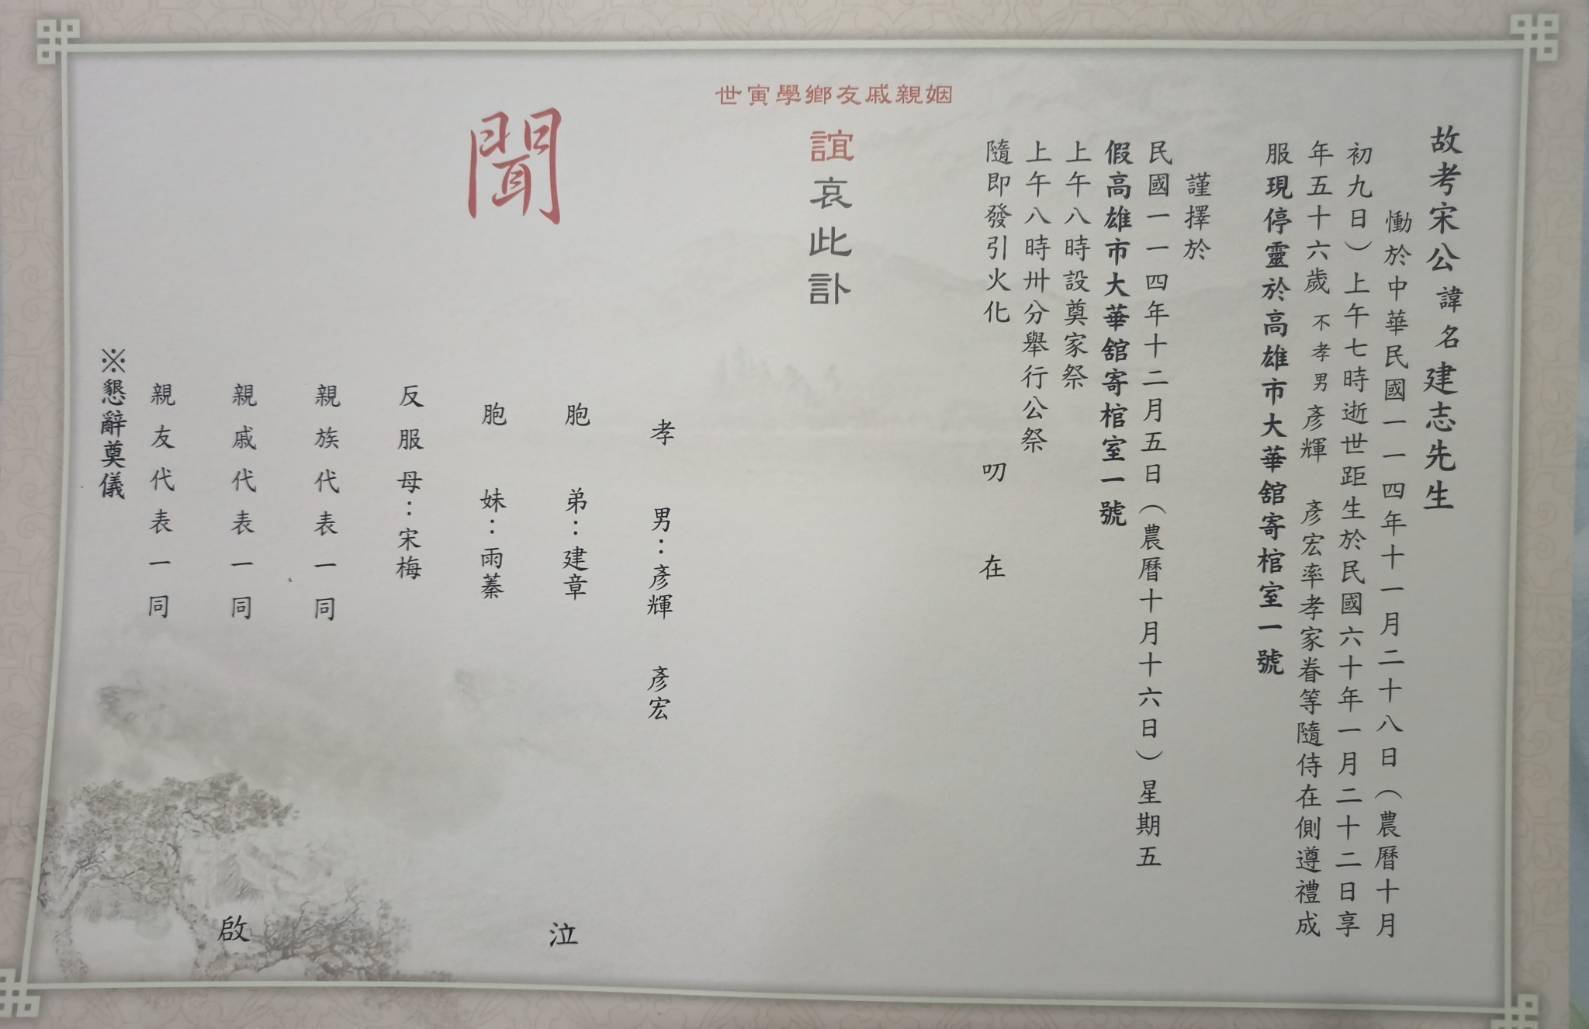 故考宋公諱名建志先生
慟於中華民國一一四年十一月二十八日（農曆十月
初九日）上午七時逝世距生於民國六十年一月二十二日享
年五十六歲 不孝男 彥輝 彥宏率孝家眷等隨侍在側遵禮成
服現停靈於高雄市大華舘寄棺室一號
謹擇於
民國一一四年十二月五日（農曆十月十六日）星期五
假高雄市大華舘寄棺室一號
上午八時設奠家祭
上午八時卅分舉行公祭
隨即發引火化 叨在
姻親戚友鄉學寅世
誼哀此訃
聞
孝男：彥輝 彥宏
胞弟：建章
胞妹：雨蓁
反服母：宋梅
泣
親族代表一同
親戚代表一同
親友代表一同
啟
※懇辭奠儀